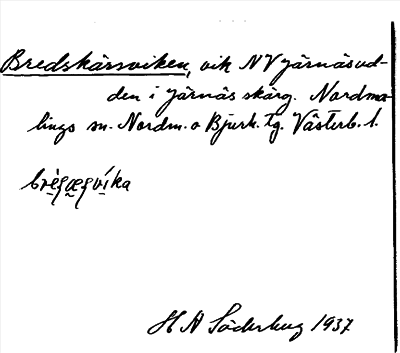 Bredskärsviken, vik NV Järnäsud-
den i Järnäs skärg. Nordma-
lings sn. Nordm. o Bjurh. tg. Västerb. l.
H A Söderberg 1937